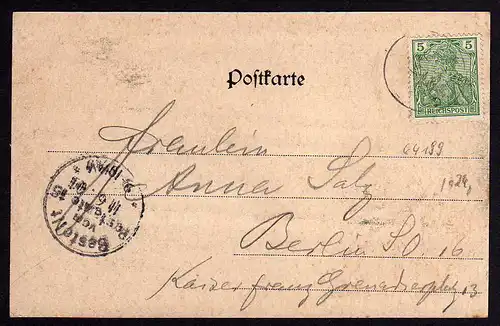 5 5
REICHSPOST
Postkarte
Fräulein
Anna Salz
Berlin SO 16
Kaiser Franz Grenadierplatz 13
Bestellt
vom
Postamte 16